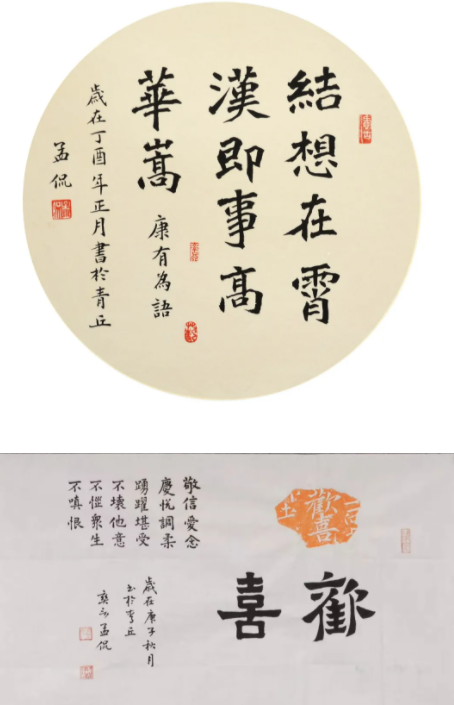 結想在霄
漢即事高
華嵩
康有為語
歲在丁酉年正月書於青丘
孟侃
歡喜
歡喜
敬信愛念
慶悅調柔
踴躍堪受
不壞他意
不惱衆生
不嗔恨
歲在庚子秋月
書於青丘
孟侃